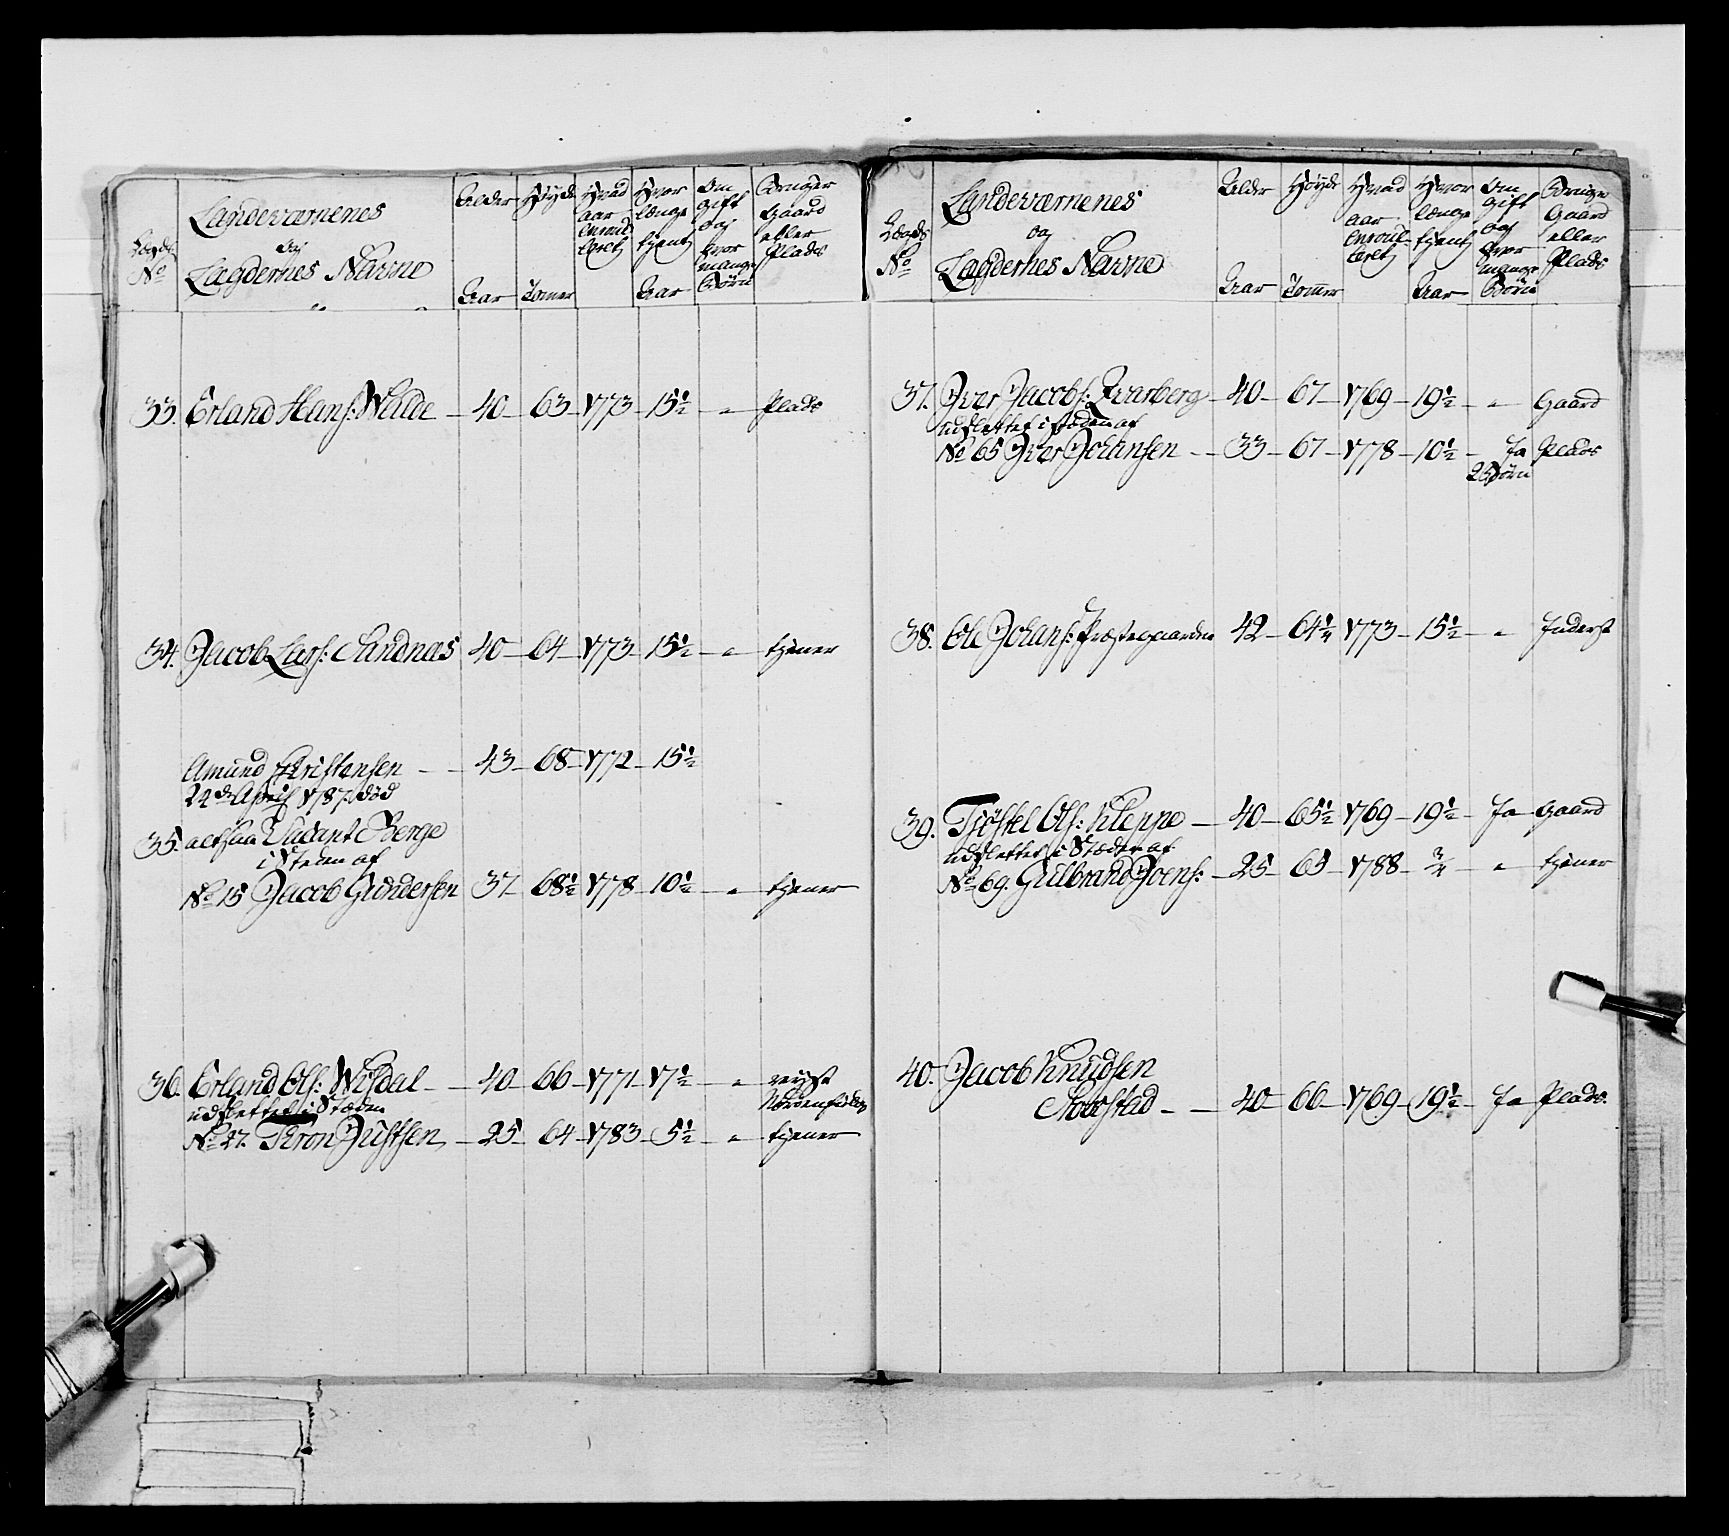 Lægds No
Landeværnenes og Lægdernes Navne
Alder Aar
Høyde Tomer
Hvad aar enroulleret
Hvor længe tjent Aar
Om gift og hvor mange Børn
Bruger Gaard eller Plads
33. Erland Hans: Melde – 40 – 63 – 1773 – 15½ – " – Plads
34. Jacob Lars: Sandnæs 40 – 64 – 1773 – 15½ – " – tjener
Amund Christensen – 43 – 68 – 1772 – 15½
24de April 1787. død
35. altsaa Vacant Berge
i Steden af
No 15 Jacob Gundersen 37 – 68½ 1778 – 10½ – " – tjener
36. Erland Ols: – 40 – 66 – 1771 – 17½ – " – reyst
Nordenfields
udslettet i Stæden
No 27. Thron Justsen – 25 – 64 – 1783 – 5½ – " – tjener
Lægds No
Landeværnenes og Lægdernes Navne
Alder Aar
Høyde Tommer
Hvad aar enroulleret
Hvor længe tjent Aar
Om gift og hvor mange Børn
Bruger Gaard eller Plads
37. Iver Jacobs: Qvarberg 40 – 67 – 1769 – 19½ – " – Gaard
udslettet i stæden af
No 65 Iver Johansen – 33 – 67 – 1778 – 10½ – Ja Plads
2 Børn
38. Ole Johans: Præstegaarden 42 – 64¼ 1773 – 15½ – " – Inderst
39. Tjøstel Ols: Kleppe – 40 – 65½ 1769 – 19½ – Ja – Gaard
udslettet i Stæden af
No 69. Gulbrand Joens: – 25 – 65 – 1788 – ¾ – " – tjener
40. Jacob Knudsen
– 40 – 66 – 1769 – 19½ – Ja – Plads.